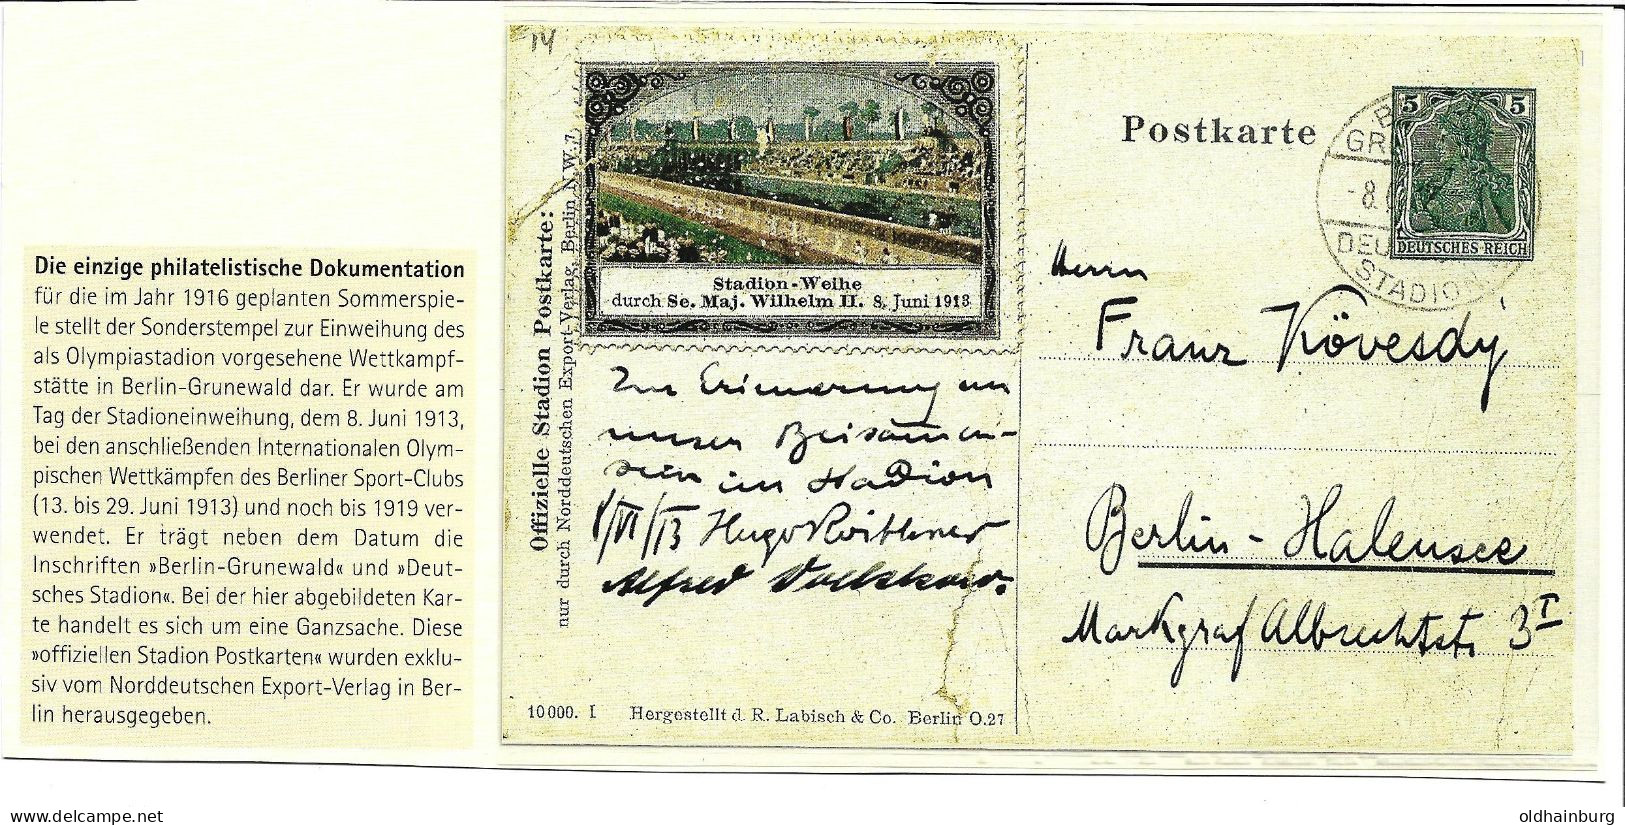 Die einzige philatelistische Dokumentation
für die im Jahr 1916 geplanten Sommerspie-
le stellt der Sonderstempel zur Einweihung des
als Olympiastadion vorgesehene Wettkampf-
stätte in Berlin-Grunewald dar. Er wurde am
Tag der Stadioneinweihung, dem 8. Juni 1913,
bei den anschließenden Internationalen Olym-
pischen Wettkämpfen des Berliner Sport-Clubs
(13. bis 29. Juni 1913) und noch bis 1919 ver-
wendet. Er trägt neben dem Datum die
Inschriften »Berlin-Grunewald« und »Deut-
sches Stadion«. Bei der hier abgebildeten Kar-
te handelt es sich um eine Ganzsache. Diese
»offiziellen Stadion Postkarten« wurden exklu-
siv vom Norddeutschen Export-Verlag in Ber-
lin herausgegeben.
14
Offizielle Stadion Postkarte:
nur durch Norddeutschen Export-Verlag, Berlin N.W. 7.
Stadion-Weihe
durch Se. Maj. Wilhelm II. 8. Juni 1913
Zur Erinnerung an
unser Beisammen-
sein im Stadion
8/VI/13 Hugo
Alfred
10000. I Hergestellt d. R. Labisch & Co. Berlin O.27
Postkarte
5 5
DEUTSCHES REICH
GR
-8.
DEU
STADION
Herrn
Franz Kövesdy
Berlin-Halensee
Markgraf Albrechtstr. 3 I
oldhainburg